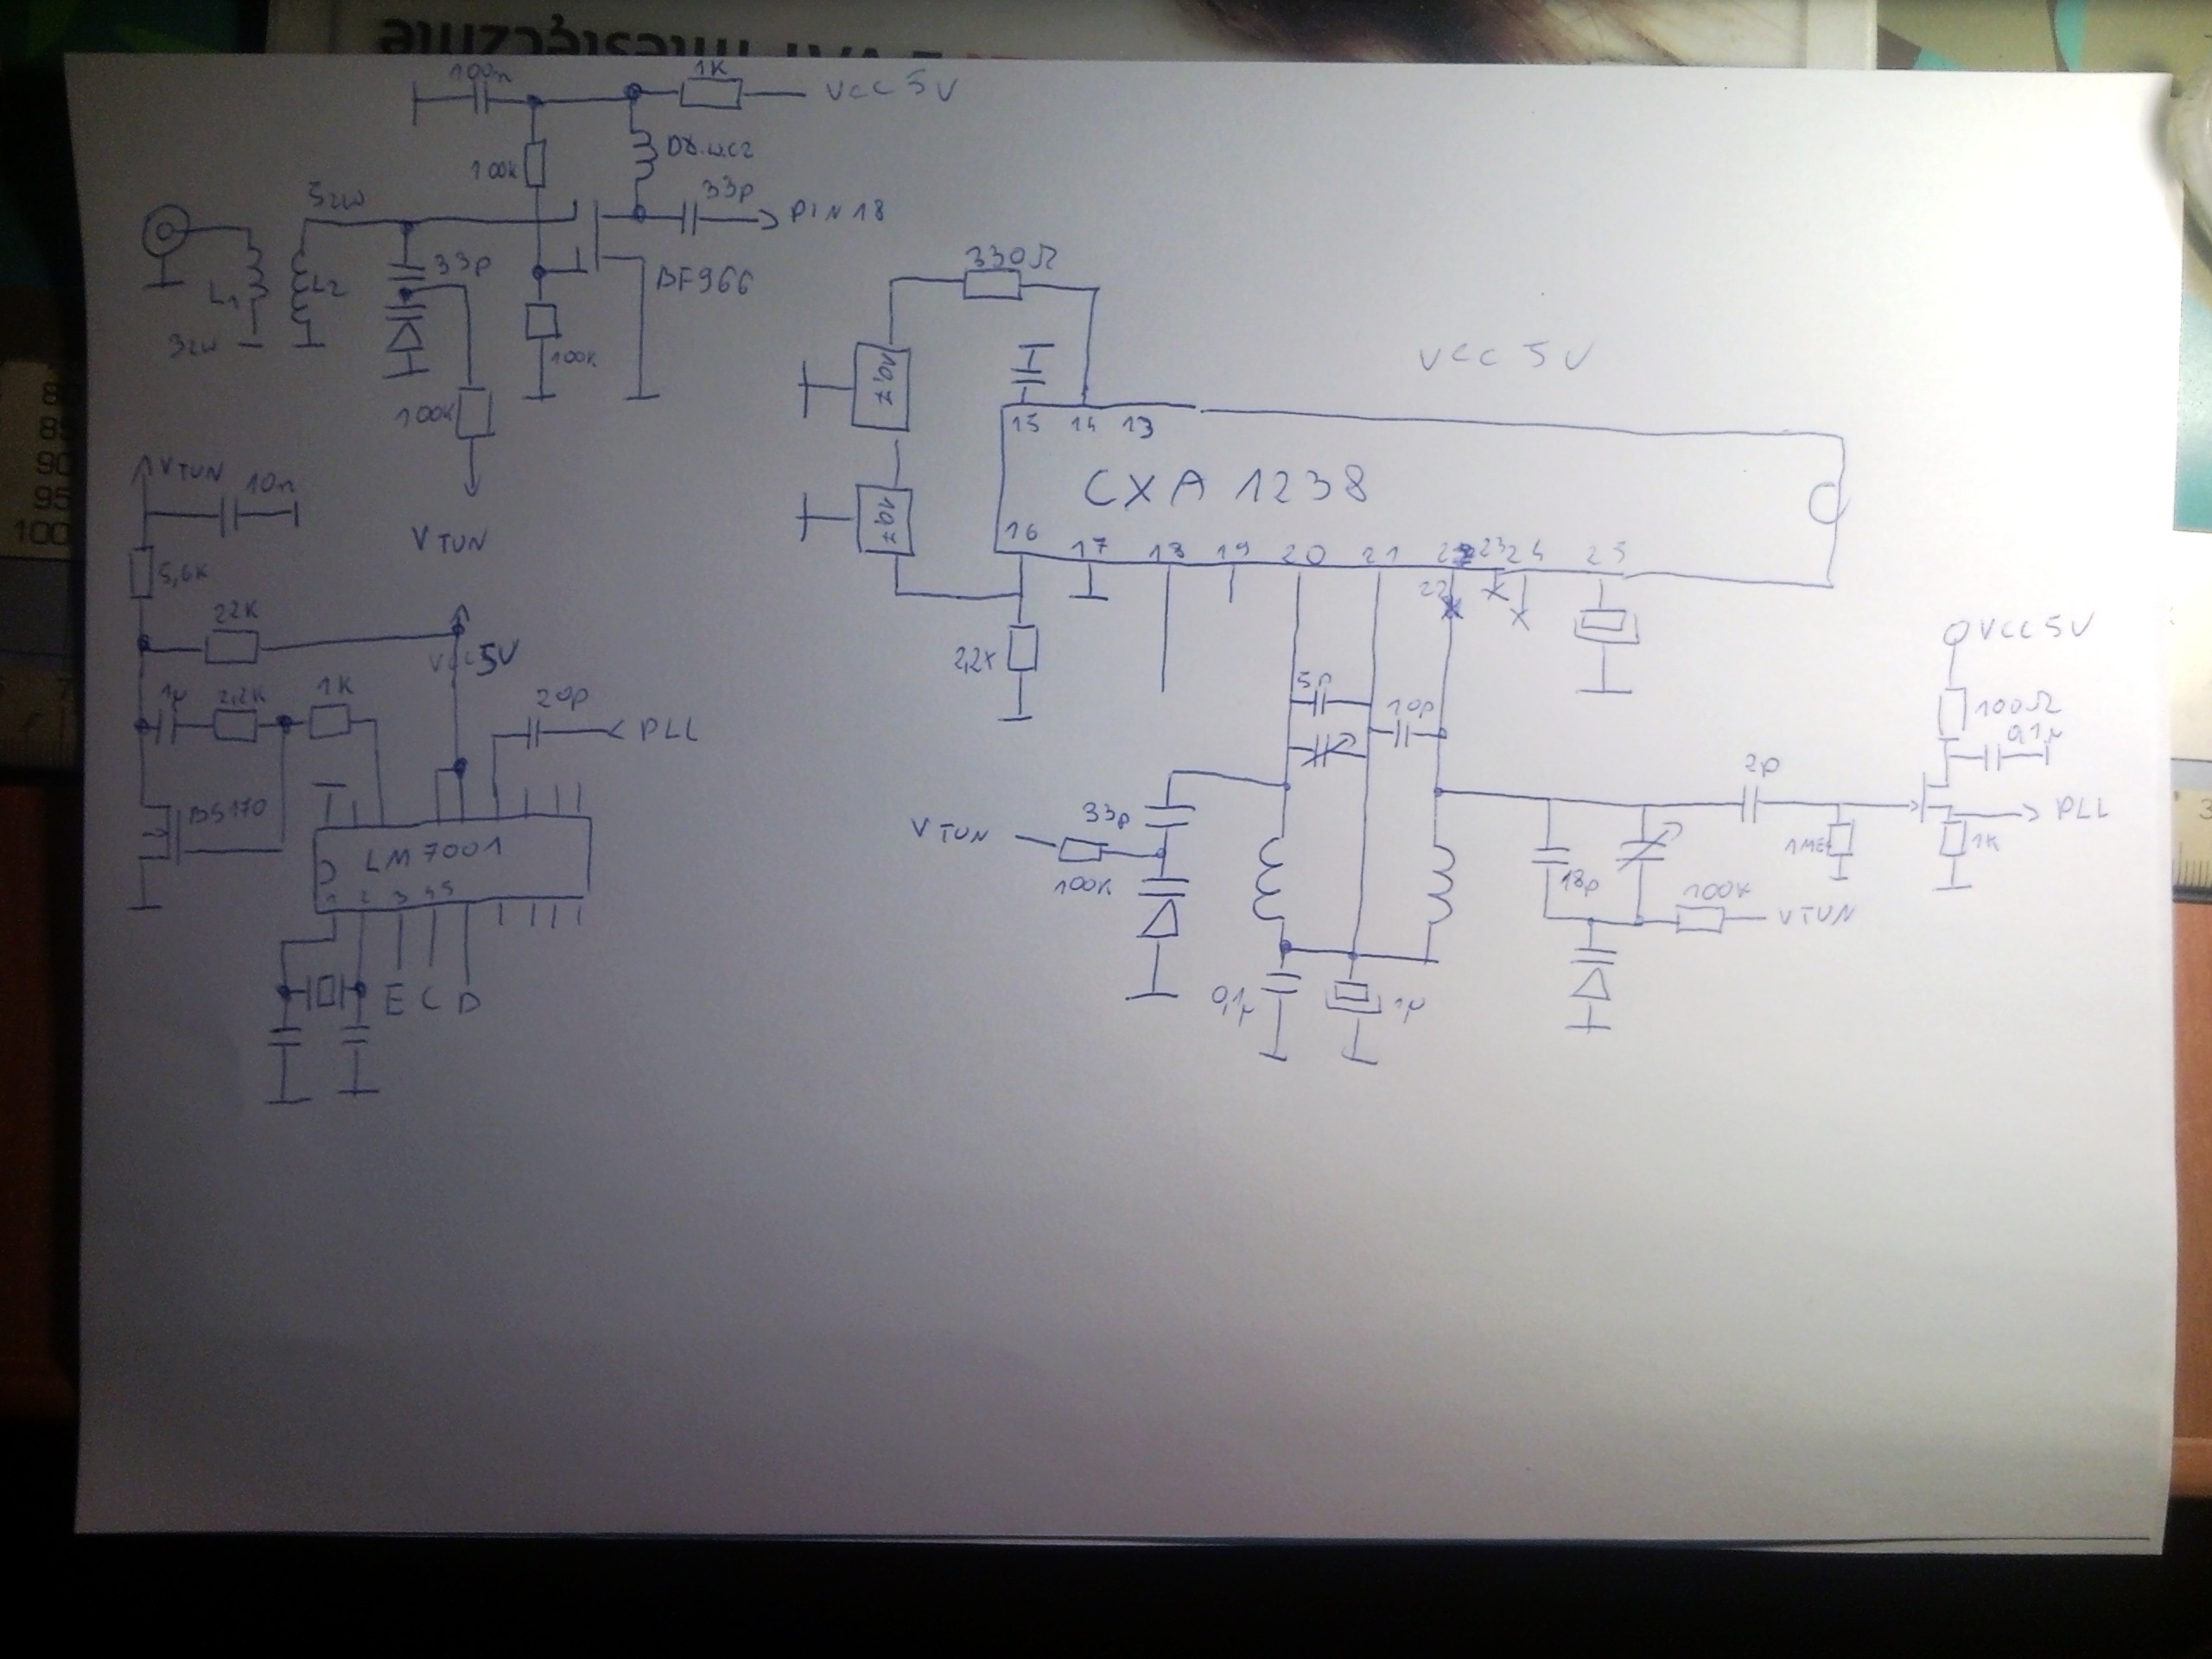 100n
1K
VCC 5V
100K
DŁ.W.CZ
33p
PIN 18
5ZW
33p
BF966
L1
L2
3ZW
100K
100K
VTUN
VTUN
10n
5,6K
22K
VCC 5V
1µ
2,2K
1K
20p
PLL
BS170
LM7001
1 2 3 4 5
E C D
330Ω
10,7
10,7
VCC 5V
15 14 13
CXA 1238
16 17 18 19 20 21 22 23 24 25
22
2,2K
5p
10p
33p
VTUN
100K
0,1µ
1µ
2p
18p
100K
VTUN
1ME
VCC 5V
100Ω
0,1µ
PLL
1K
80
85
90
95
100